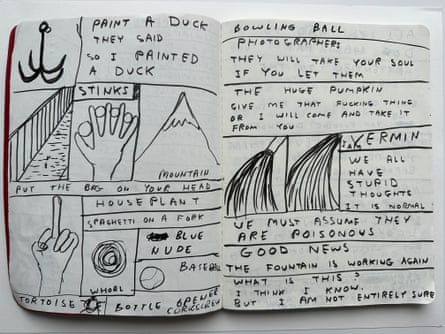 PAINT A DUCK
THEY SAID
SO I PAINTED
A DUCK
STINKS
MOUNTAIN
PUT THE BAG ON YOUR HEAD
HOUSEPLANT
SPAGHETTI ON A FORK
BLUE
NUDE
BASEBALL
WHORL
TORTOISE
BOTTLE OPENER
CORKSCREW
BOWLING BALL
PHOTOGRAPHERS
THEY WILL TAKE YOUR SOUL
IF YOU LET THEM
THE HUGE PUMPKIN
GIVE ME THAT FUCKING THING
OR I WILL COME AND TAKE IT
FROM YOU
VERMIN
WE ALL
HAVE
STUPID
THOUGHTS
IT IS NORMAL
WE MUST ASSUME THEY
ARE POISONOUS
GOOD NEWS
THE FOUNTAIN IS WORKING AGAIN
WHAT IS THIS?
I THINK I KNOW.
BUT I AM NOT ENTIRELY SURE